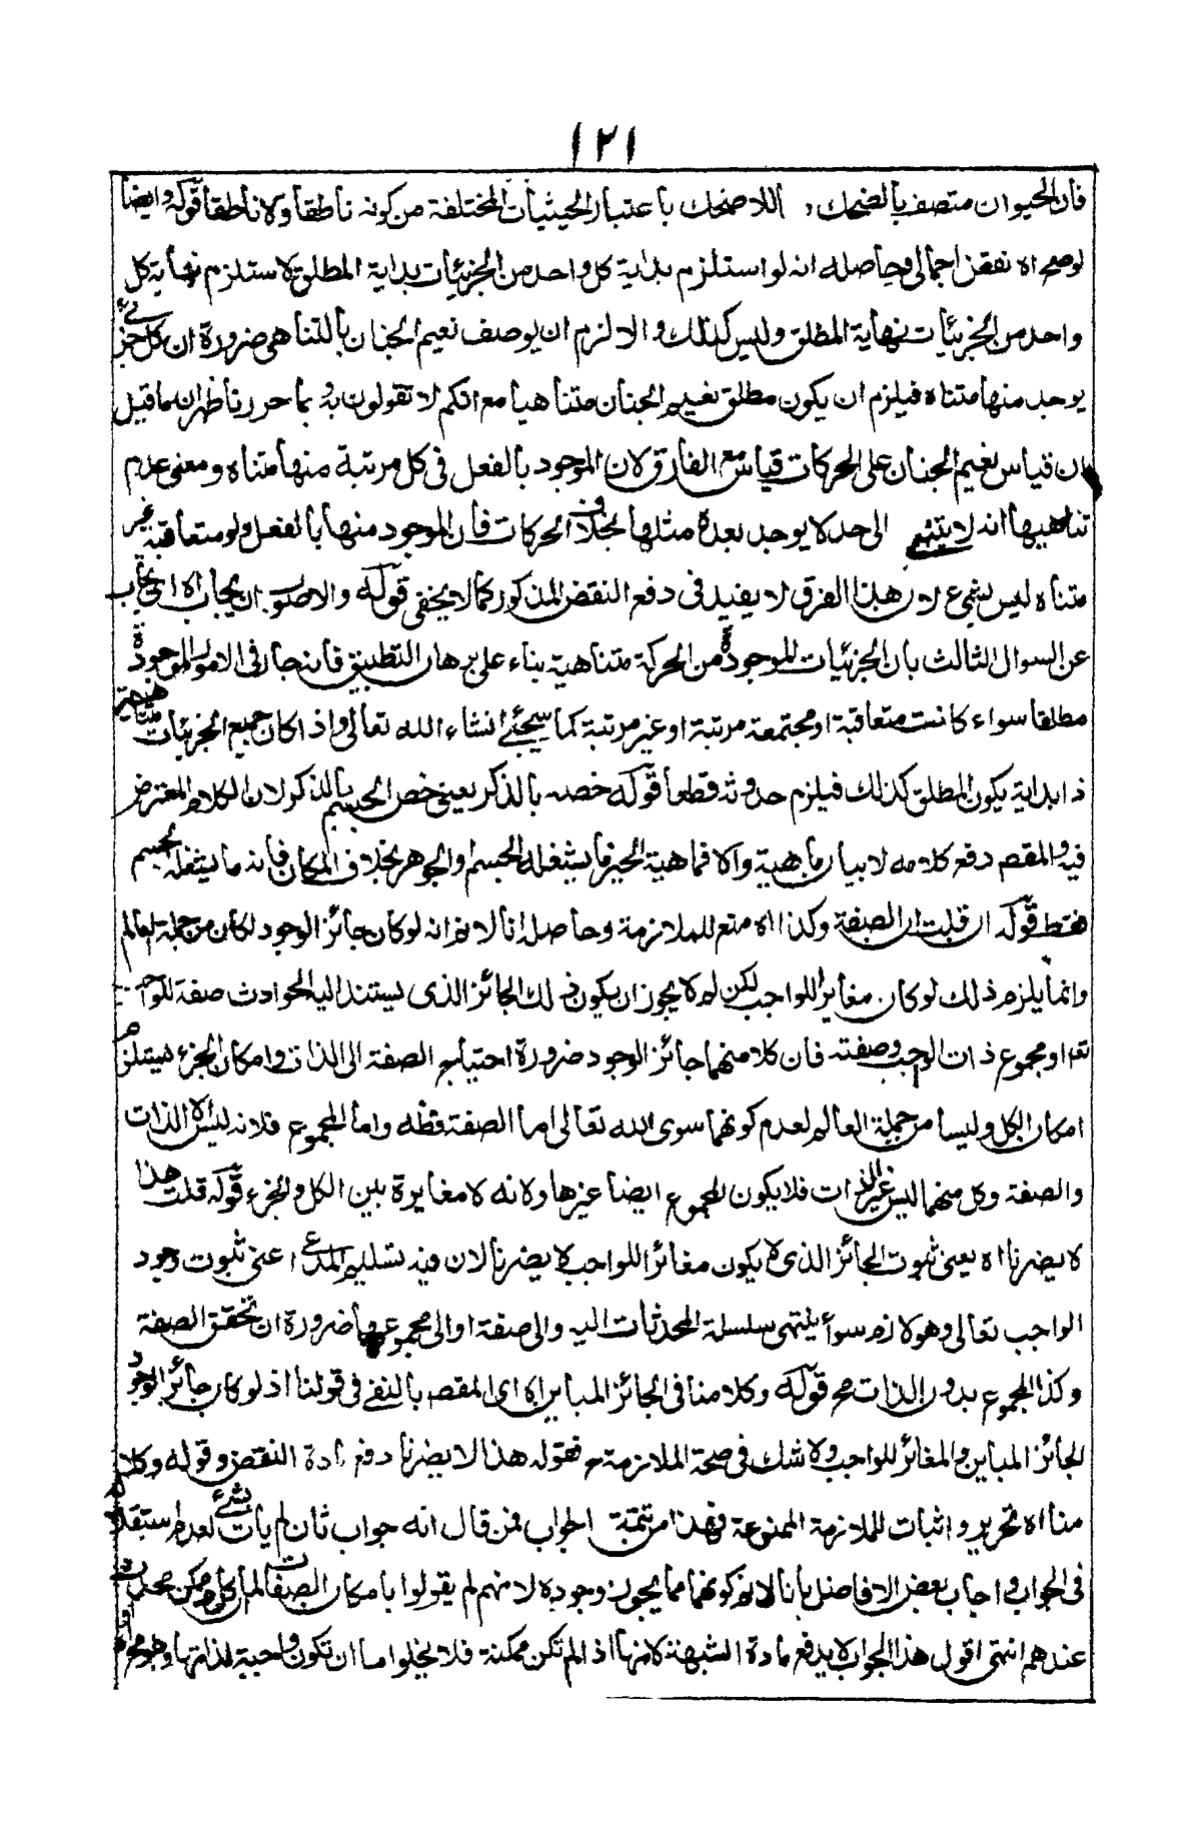 ١٢١
فان الحيوان متصف بالضحك و اللاضحك باعتبار الحيثيات المختلفة من كونه ناطقا ولا ناطقا قوله وايضا
لوصح اه نقض اجمالى وحاصله انه لو استلزم بداية كل واحد من الجزئيات بداية المطلق لاستلزم نهاية كل
واحد من الجزئيات نهاية المطلق وليس كذلك والا لزم ان يوصف نعيم الجنان بالتناهى ضرورة ان كل جزئى
يوجد منها متناه فيلزم ان يكون مطلق نعيم الجنان متناهيا مع انكم لا تقولون به وبما حررنا ظهر ان ما قيل
ان قياس نعيم الجنان على الحركات قياس مع الفارق لان الموجود بالفعل فى كل مرتبة منها متناه ومعنى عدم
تناهيها انه لا ينتهى الى حد لا يوجد بعده مثلها بخلاف الحركات فان الموجود منها بالفعل ولو متعاقبة غير
متناه ليس بشىء لان هذا الفرق لا يفيد فى دفع النقض المذكور كما لا يخفى قوله والاصوب ان يجاب اه اى يجاب
عن السوال الثالث بان الجزئيات الموجودة من الحركة متناهية بناء على برهان التطبيق فانه جار فى الامور الموجودة
مطلقا سواء كانت متعاقبة او مجتمعة مرتبة او غير مرتبة كما سيجئ انشاء الله تعالى واذا كان جميع الجزئيات متناهية
ذا بداية يكون المطلق كذلك فيلزم حدوثه قطعا قوله خصه بالذكر يعنى خص الجسم بالذكر لان الكلام المعترض
فيه والمقصد دفع كلامه لا بيان ماهيته والا فماهية الحيز ما يشغله الجسم او الجوهر بخلاف المكان فانه ما يشغله الجسم
فقط قوله ان قلت ان الصفة وكذا اه منع للملازمة وحاصله انا لا نم انه لو كان جائز الوجود لكان من جملة العالم
وانما يلزم ذلك لو كان مغايرا للواجب لكن لم لا يجوز ان يكون ذلك الجائز الذى يستند اليه الحوادث صفة للواجب
تعه او مجموع ذات الواجب وصفته فان كلا منهما جائز الوجود ضرورة احتياج الصفة الى الذات وامكان الجزء يستلزم
امكان الكل وليسا من جملة العالم لعدم كونهما سوى الله تعالى اما الصفة فظه واما المجموع فلانه ليس الا الذات
والصفة وكل منهما ليس غير الذات فلا يكون المجموع ايضا غيرها ولانه لا مغايرة بين الكل والجزء قوله قلت هذا
لا يضرنا اه يعنى ثبوت الجائز الذى لا يكون مغائرا للواجب لا يضرنا لان فيه تسليم المدعى اعنى ثبوت وجود
الواجب تعالى وهو لازم سواء ينتهى سلسلة المحدثات اليه والى صفة او الى مجموعهما ضرورة ان تحقق الصفة
وكذا المجموع بدون الذات مح قوله وكلامنا فى الجائز المباين اه اى المقصد بالنفى فى قولنا اذ لو كان جائز الوجود
الجائز المباين والمغائر للواجب ولا شك فى صحة الملازمة ح فقوله هذا لا يضرنا دفع مادة النقض وقوله وكلا
منا اه تحرير و اثبات للملازمة الممنوعة فهذا من تتمة الجواب فمن قال انه جواب ثان لم يات بشئ لعدم استقلاله
فى الجواب واجاب بعض الافاضل بانا لا نم كونهما مما يجوز وجوده لانهم لم يقولوا بامكان الصفات لما ان كل ممكن محدث
عندهم انتهى اقول هذا الجواب لا يدفع مادة الشبهة لانها اذا لم تكن ممكنة فلا يخلو اما ان تكون واجبة لذاتها وهو مح